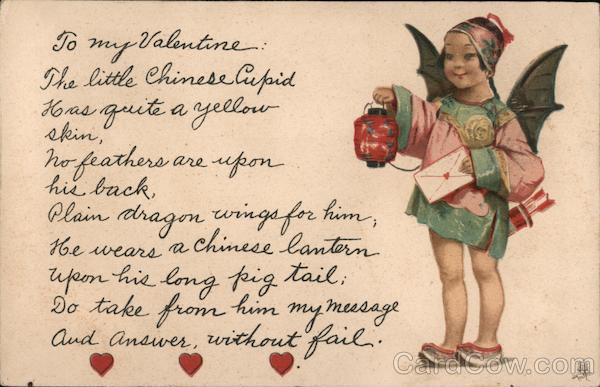 To my Valentine:
The little Chinese Cupid
Has quite a yellow
skin,
No feathers are upon
his back,
Plain dragon wings for him;
He wears a Chinese lantern
Upon his long pig tail;
Do take from him my message
And answer, without fail.
CardCow.com